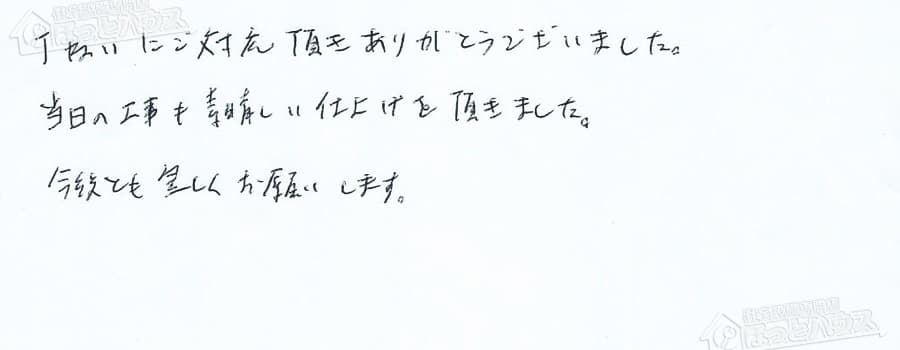 丁ねいにご対応頂きありがとうございました。
当日の工事も素晴しい仕上げを頂きました。
今後とも宜しくお願いします。
ほっとハウス
ほっとハウス